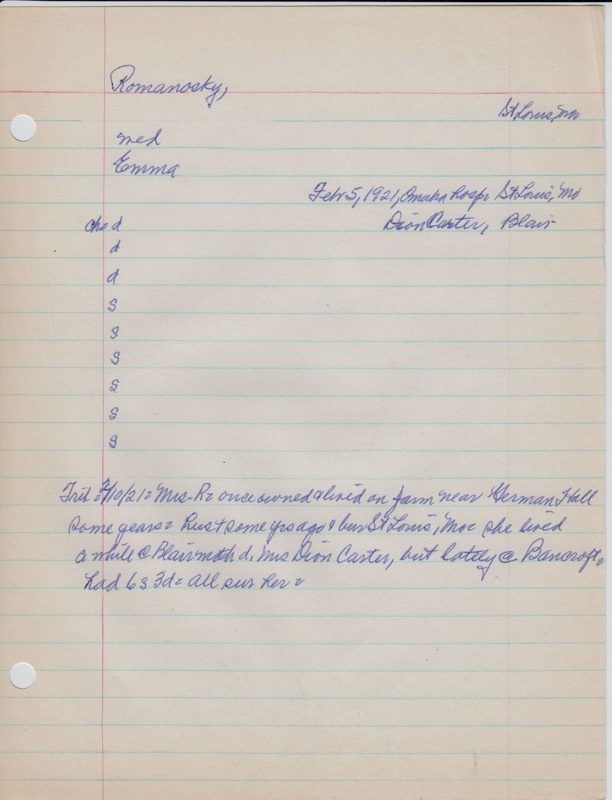 Romanosky,
St Louis, Mo
med
Emma
Febr 5, 1921, Omaha hosp. St Louis, Mo
ch = d Dion Carter, Blair
d
d
s
s
s
s
s
s
Trib = 2/10/21 = Mrs. R = once owned & lived on farm near Herman Hall
some years = Hus d some yrs ago & bur St Louis, Mo = she lived
a while @ Blair with d, Mrs Dion Carter, but lately @ Bancroft,
had 6s 3d = all sur her =